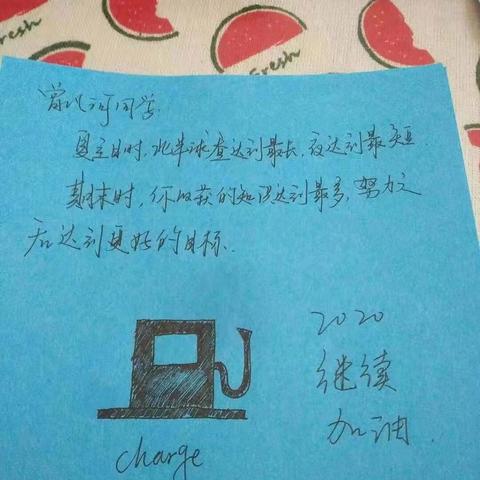 Fresh
Fresh
曾以可同学.
夏至日时,北半球昼达到最长,夜达到最短.
期末时,你收获的知识达到最多,努力之
后达到更好的目标.
2020
继续
加油.
charge